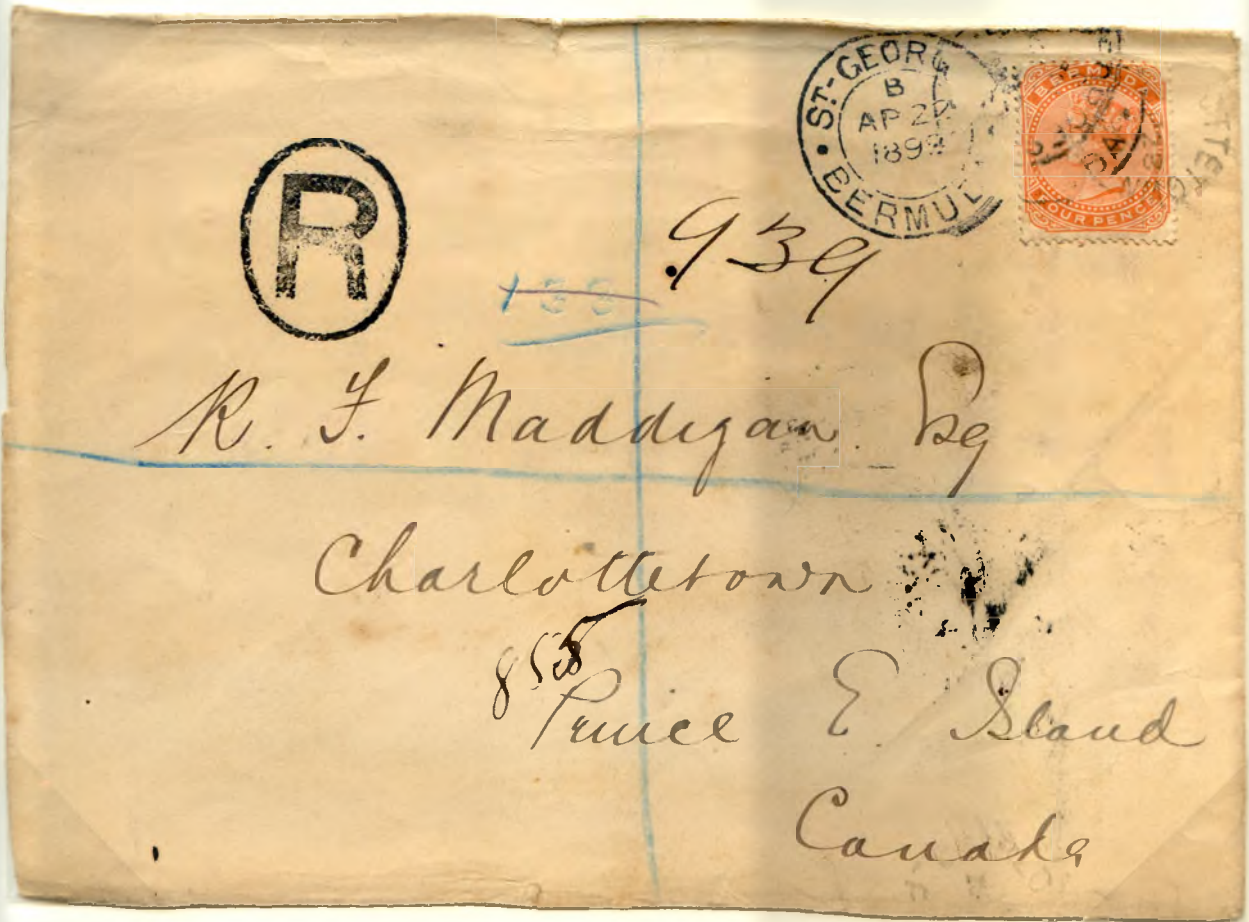 ST-GEORG
B
AP 22
1899
BERMUD
BERMUDA
FOUR PENCE
R
939
133
R. F. Maddigan. Esq
Charlottetown
858
Prince E. Island
Canada